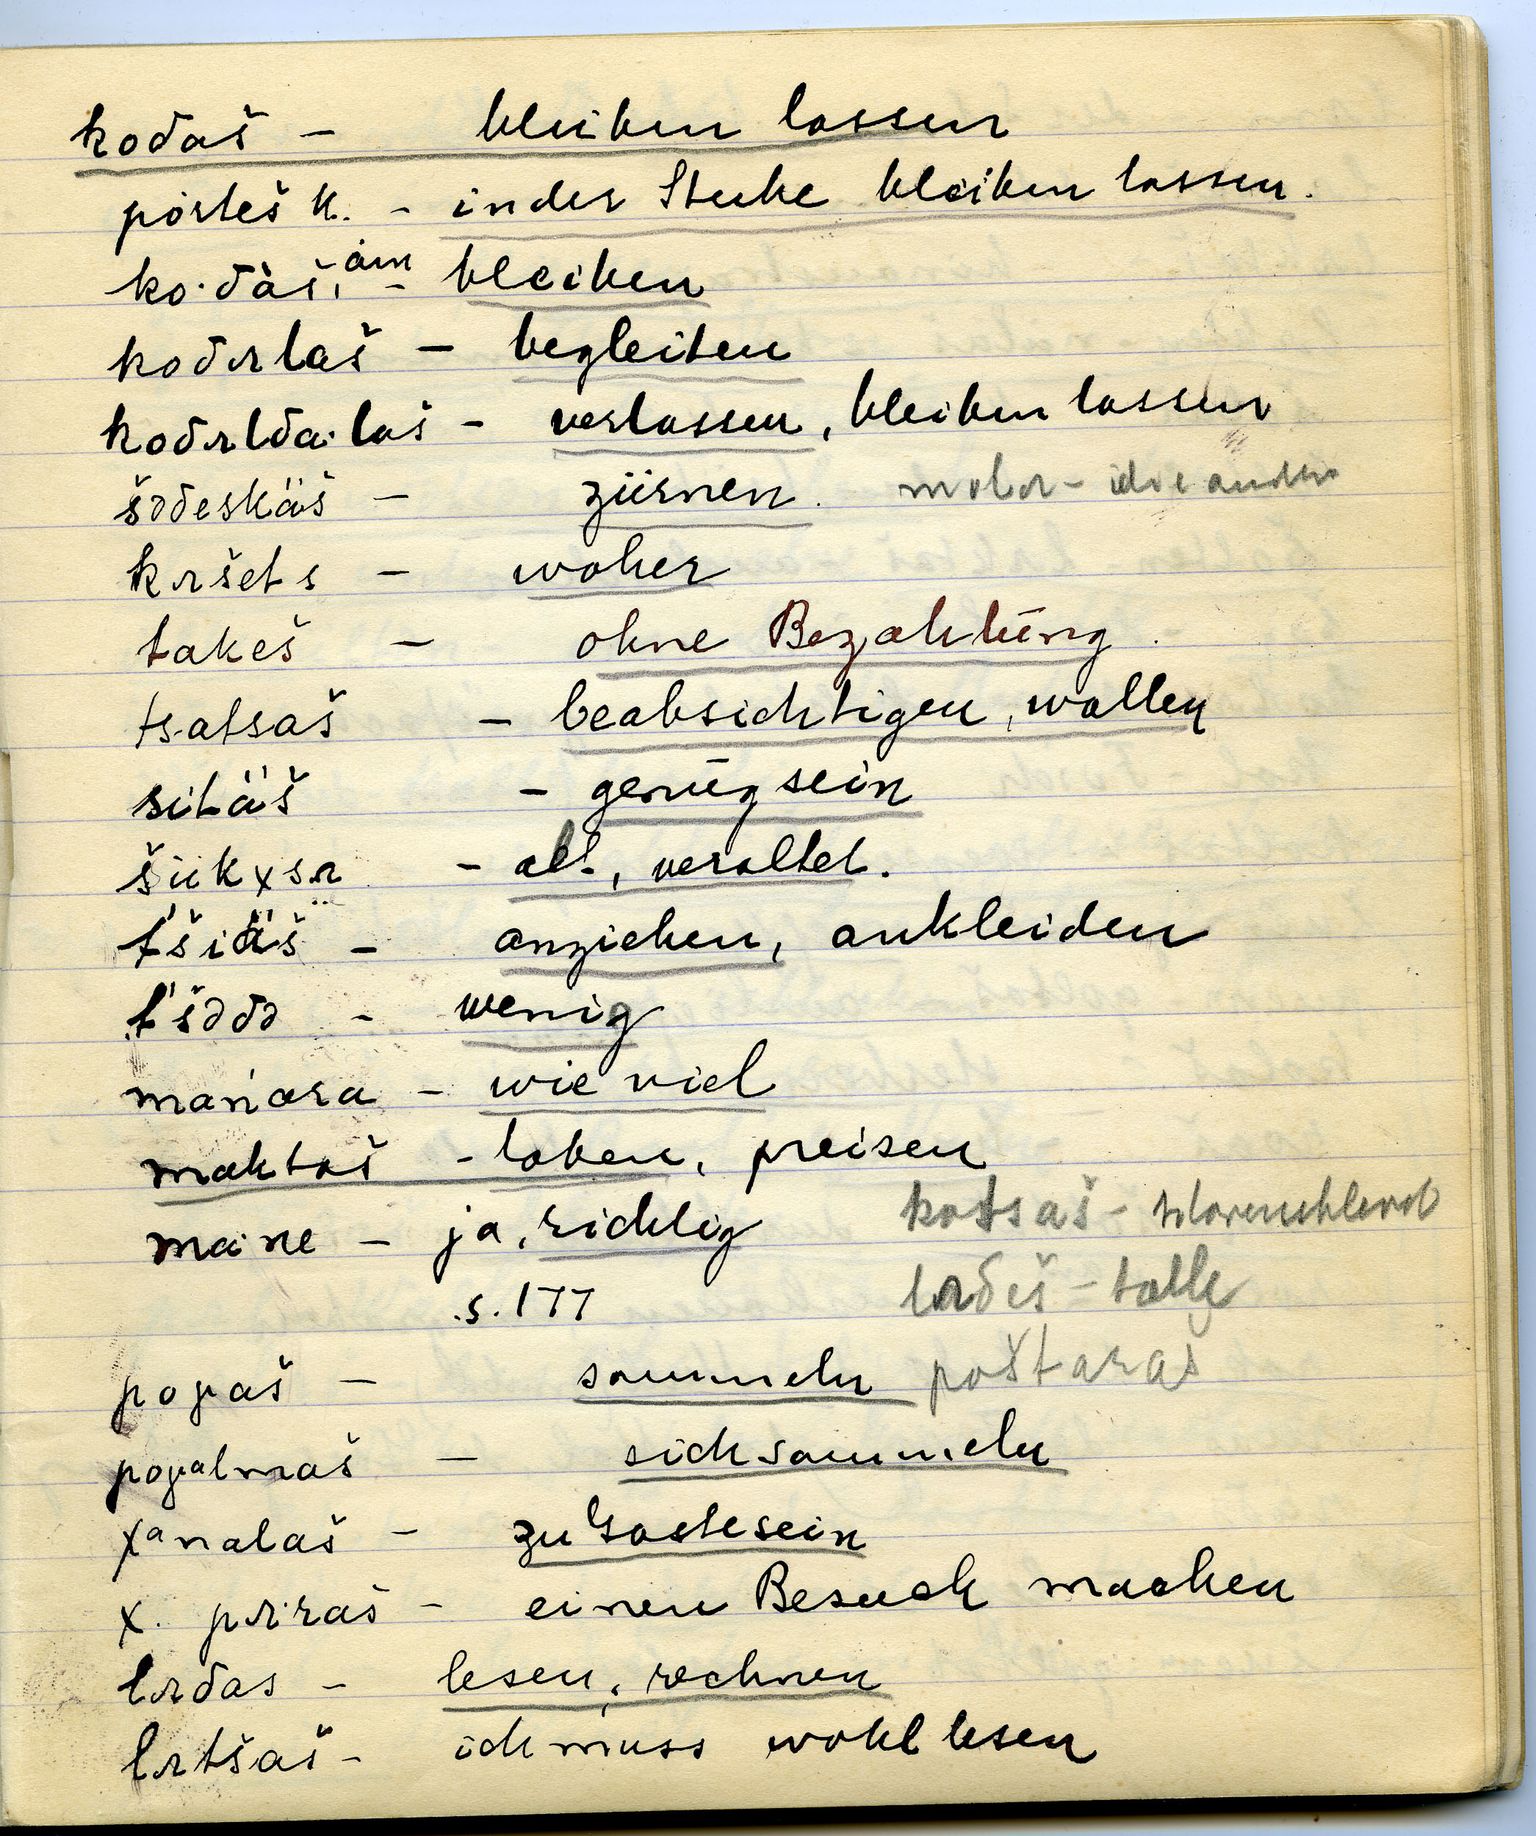 koδaš - bleiben lassen
pörtèš k. - in der Stube bleiben lassen.
ko·δàš, am - bleiben
koδʌltaš - begleiten
koδʌlδa·laš - verlassen, bleiben lassen
šəδeskäš - zürnen.
kʌšets - woher
takeš - ohne Bezahlūng.
tsatsaš - beabsichtigen, wollen
sitäš - genūg sein
šükχsʌ - alt, veraltet.
t́šiäš - anziehen, ankleiden
t́šəδə - wenig
mańara - wie viel
maktaš - loben, preisen
ma·ne - ja, richtig kotsaš -
s. 177 lʌδeš -
poγaš - sammeln poštaraš
poγalmaš - sich sammeln
χanalaš - zu Gaste sein
χ. pʌ·raš - einen Besuch machen
lʌδas - lesen, rechnen
lʌtšaš - ich muss wohl lesen